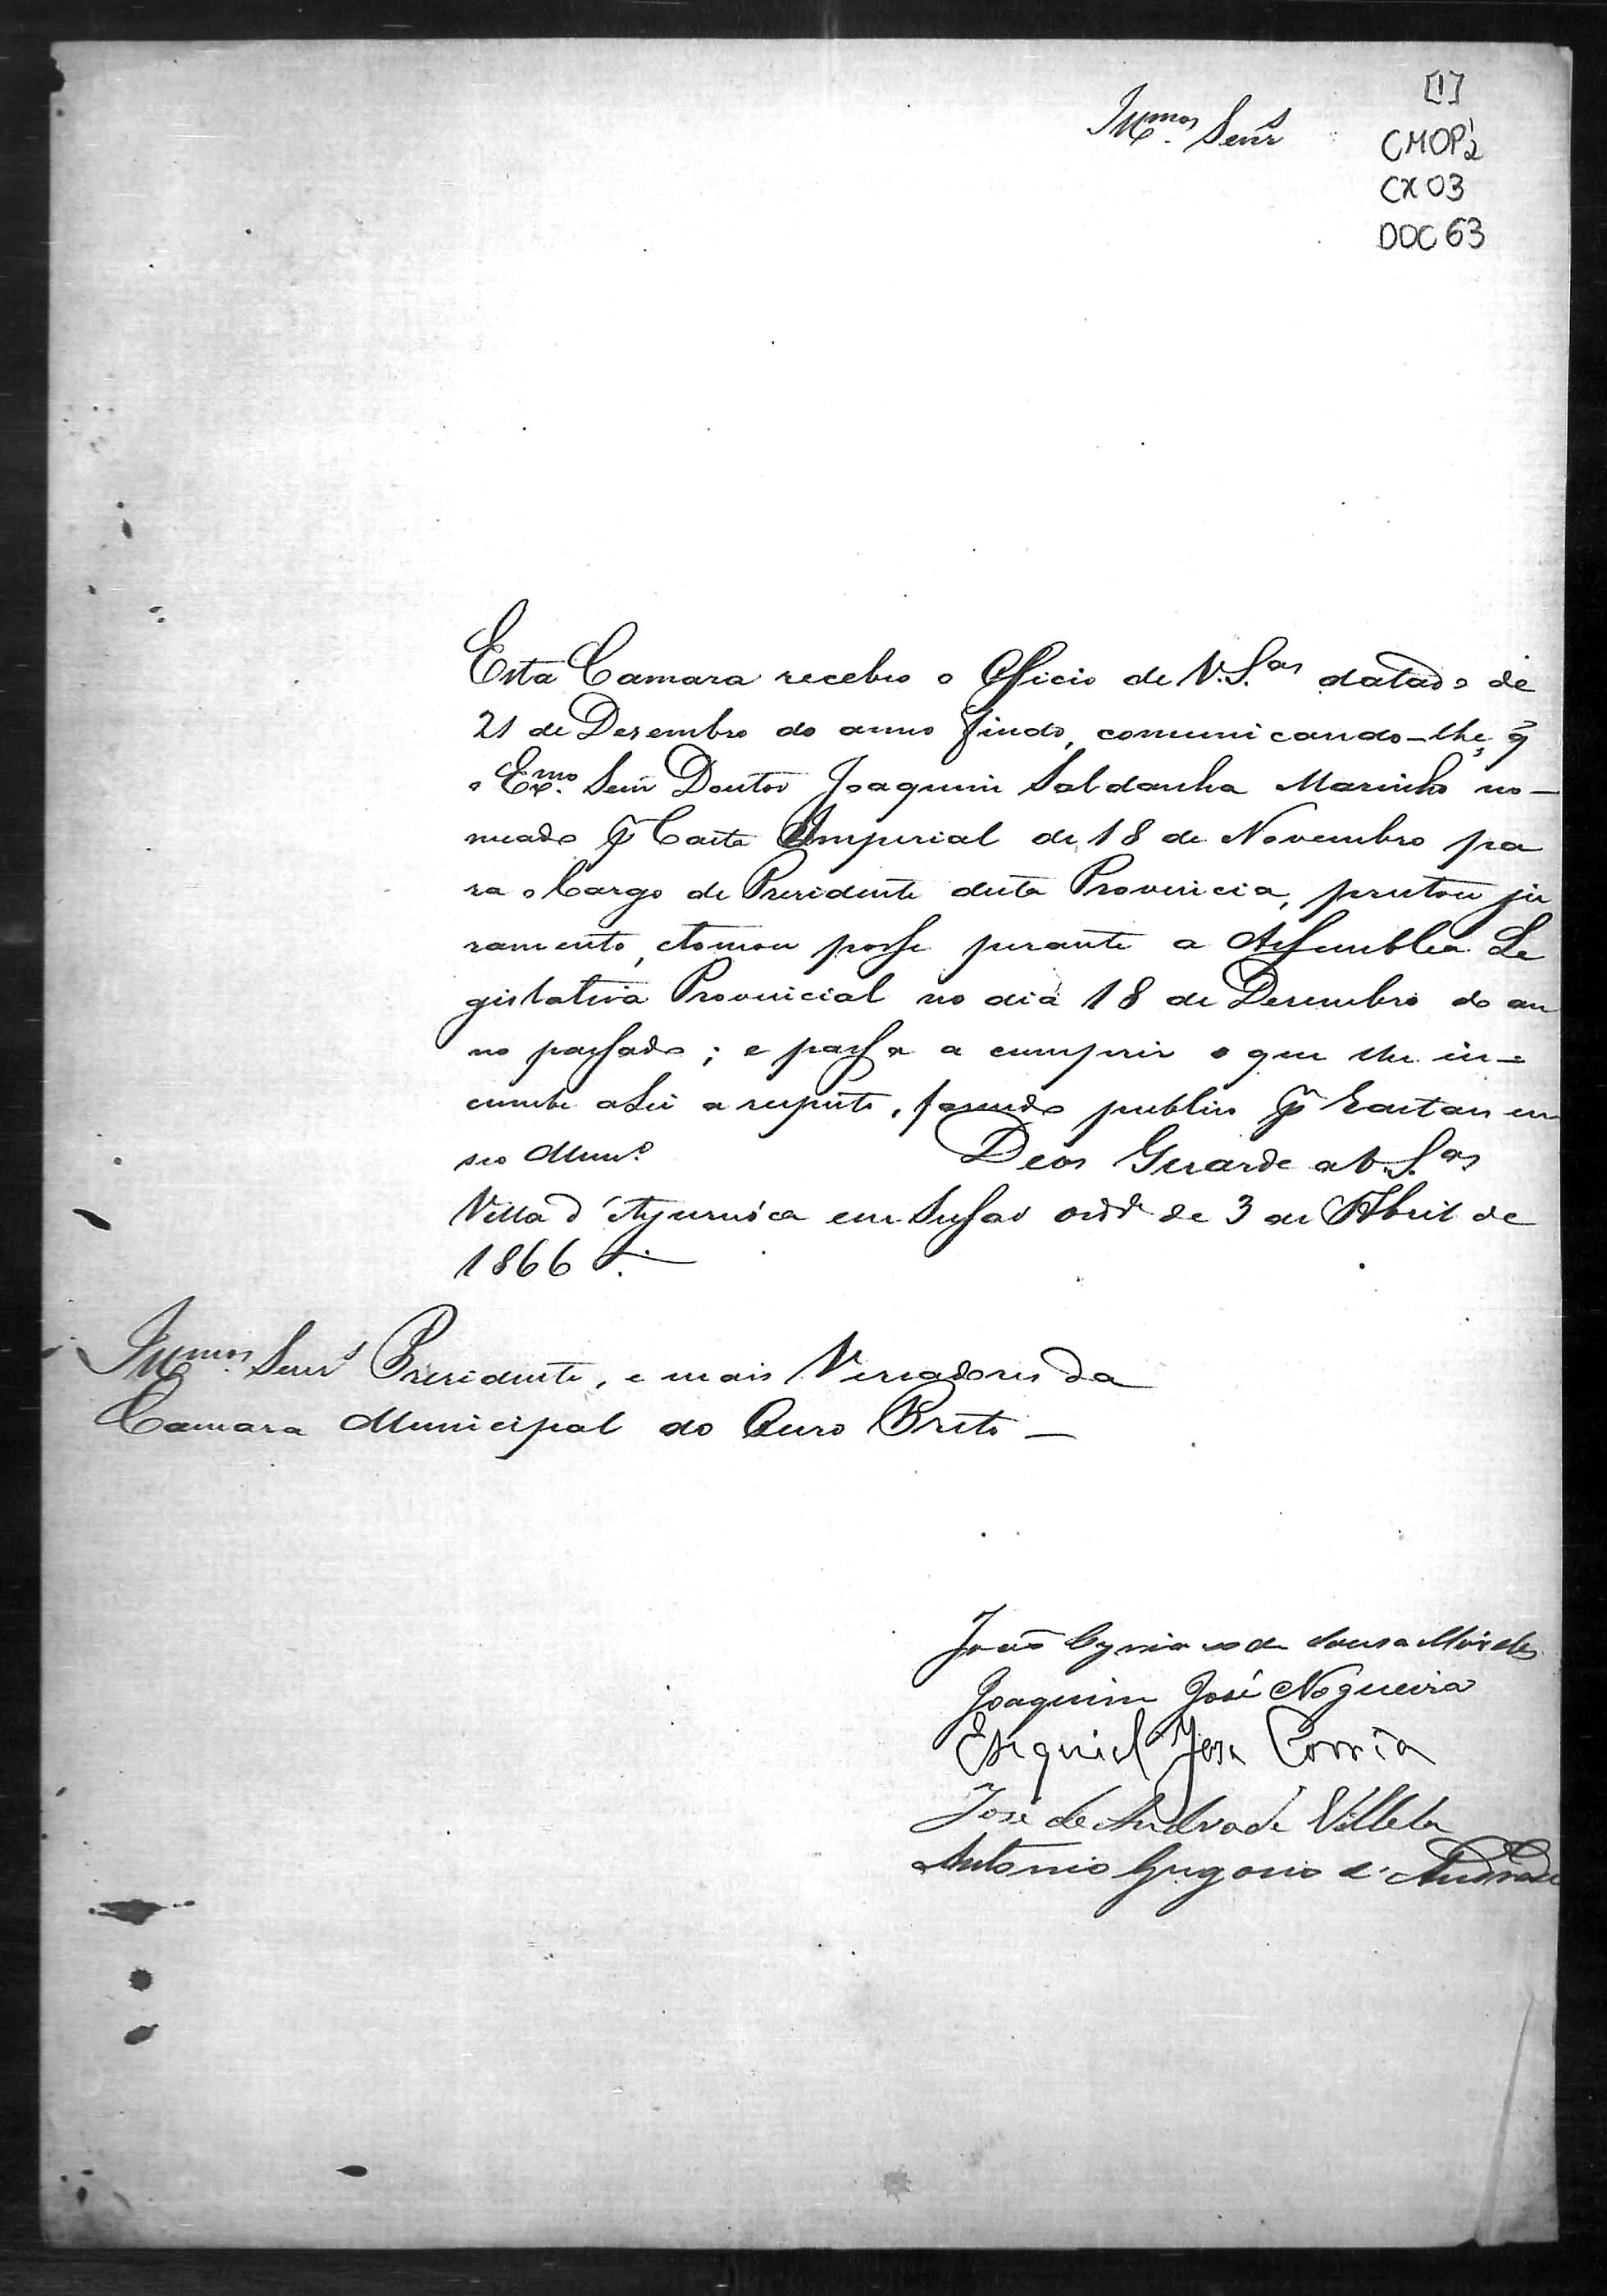 [1]
CMOP2
CX 03
DOC 63
Illmos. Senrs
Esta Camara recebeo o Officio de V.S.as datado de
21 de Desembro do anno findo, comunicando-lhe, q̃
o Exmo. Senr Doutor Joaquim Saldanha Marinho no-
meado p̃ Carta Imperial de 18 de Novembro pa
ra o Cargo de Presidente desta Provinicia, prestou ju
ramento, etomou posse perante a Assemblea Le
gislativa Provinicial no dia 18 de Desembro do an
no passado; e passa a cumprir o que lhe in-
cumbe a Lei a respeito, fasendo publico p̃ Editaes em
seo Munº. Deos Guarde a V.S.as
Villa d'Ayuruóca em Sessão ordª de 3 de Abril de
1866.
Illmos. Senrs Presidente, e mais Vereadores da
Camara Municipal do Ouro Preto —
João de Sousa
Joaquim José Nogueira
Esequiel Jose Corrêa
José de Andrade Villela
Antonio Gregorio d'Andrade